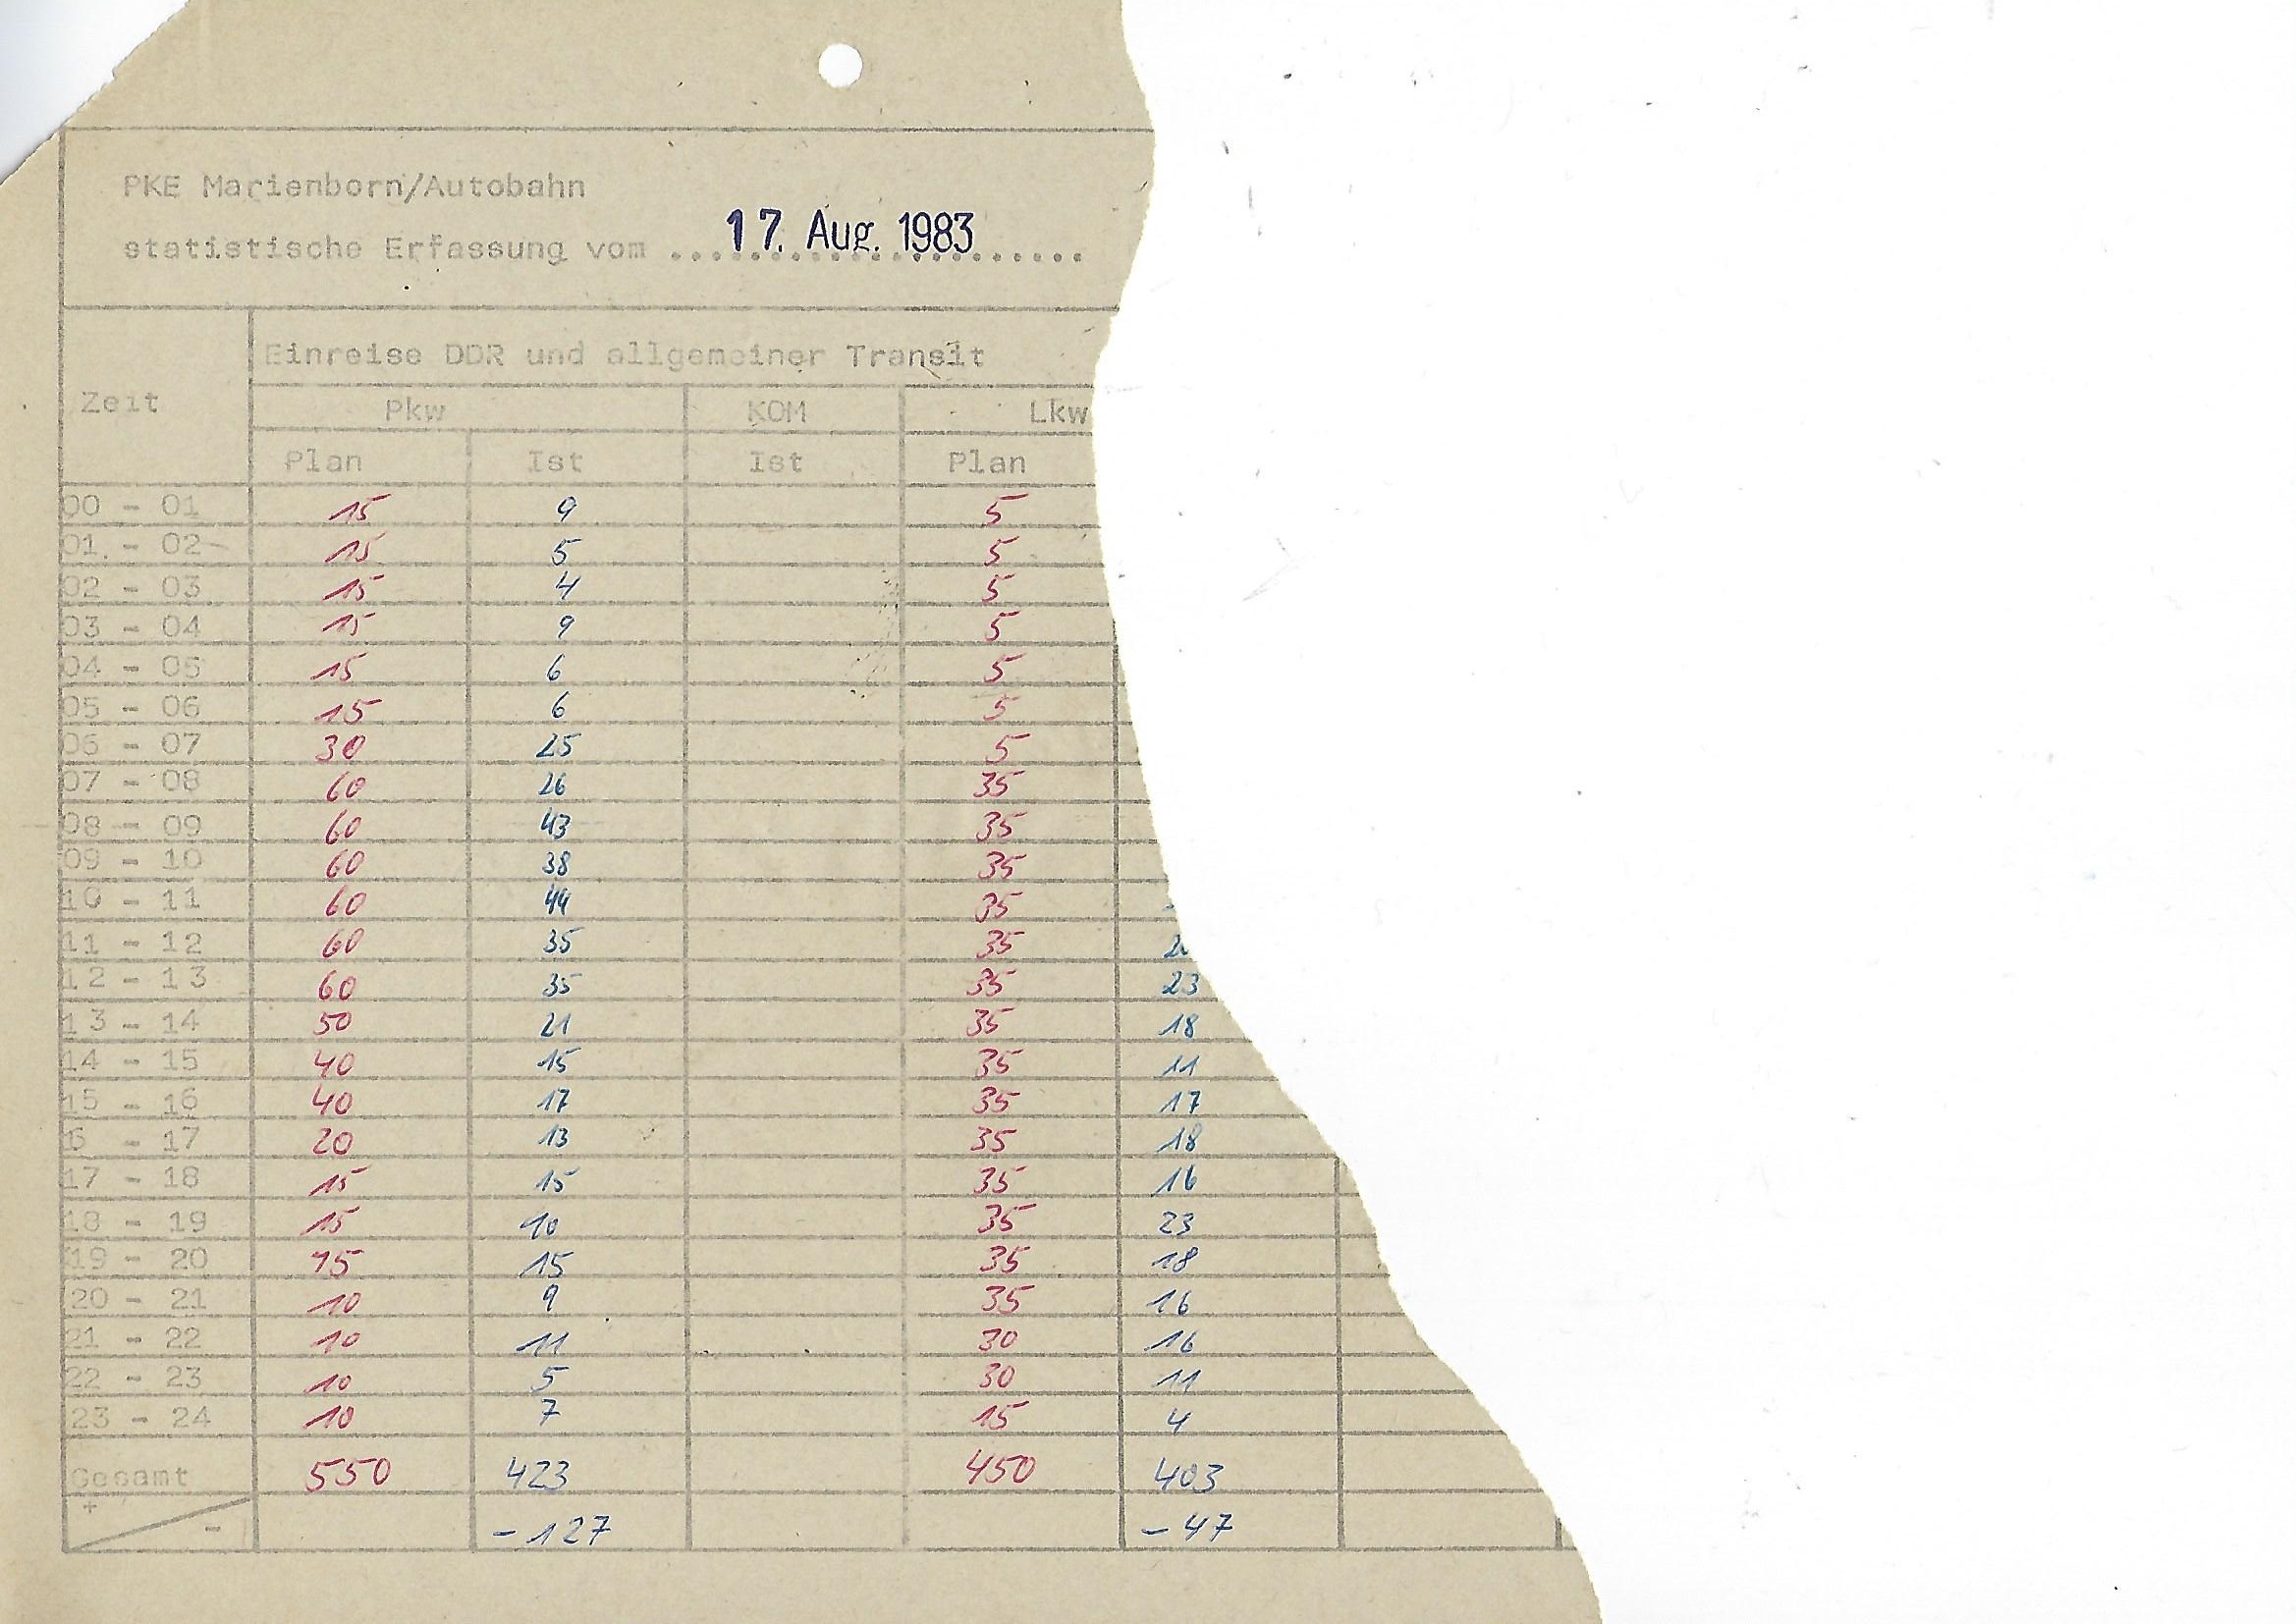 PKE Marienborn/Autobahn
statistische Erfassung vom 17. Aug. 1983
Einreise DDR und allgemeiner Transit
Zeit Pkw KOM Lkw
Plan Ist Ist Plan
00 - 01 15 9 5
01 - 02 15 5 5
02 - 03 15 4 5
03 - 04 15 9 5
04 - 05 15 6 5
05 - 06 15 6 5
06 - 07 30 25 5
07 - 08 60 26 35
08 - 09 60 43 35
09 - 10 60 38 35
10 - 11 60 44 35
11 - 12 60 35 35
12 - 13 60 35 35 23
13 - 14 50 21 35 18
14 - 15 40 15 35 11
15 - 16 40 17 35 17
6 - 17 20 13 35 18
17 - 18 15 15 35 16
18 - 19 15 10 35 23
19 - 20 15 15 35 18
20 - 21 10 9 35 16
21 - 22 10 11 30 16
22 - 23 10 5 30 11
23 - 24 10 7 15 4
Gesamt 550 423 450 403
+ - -127 -47